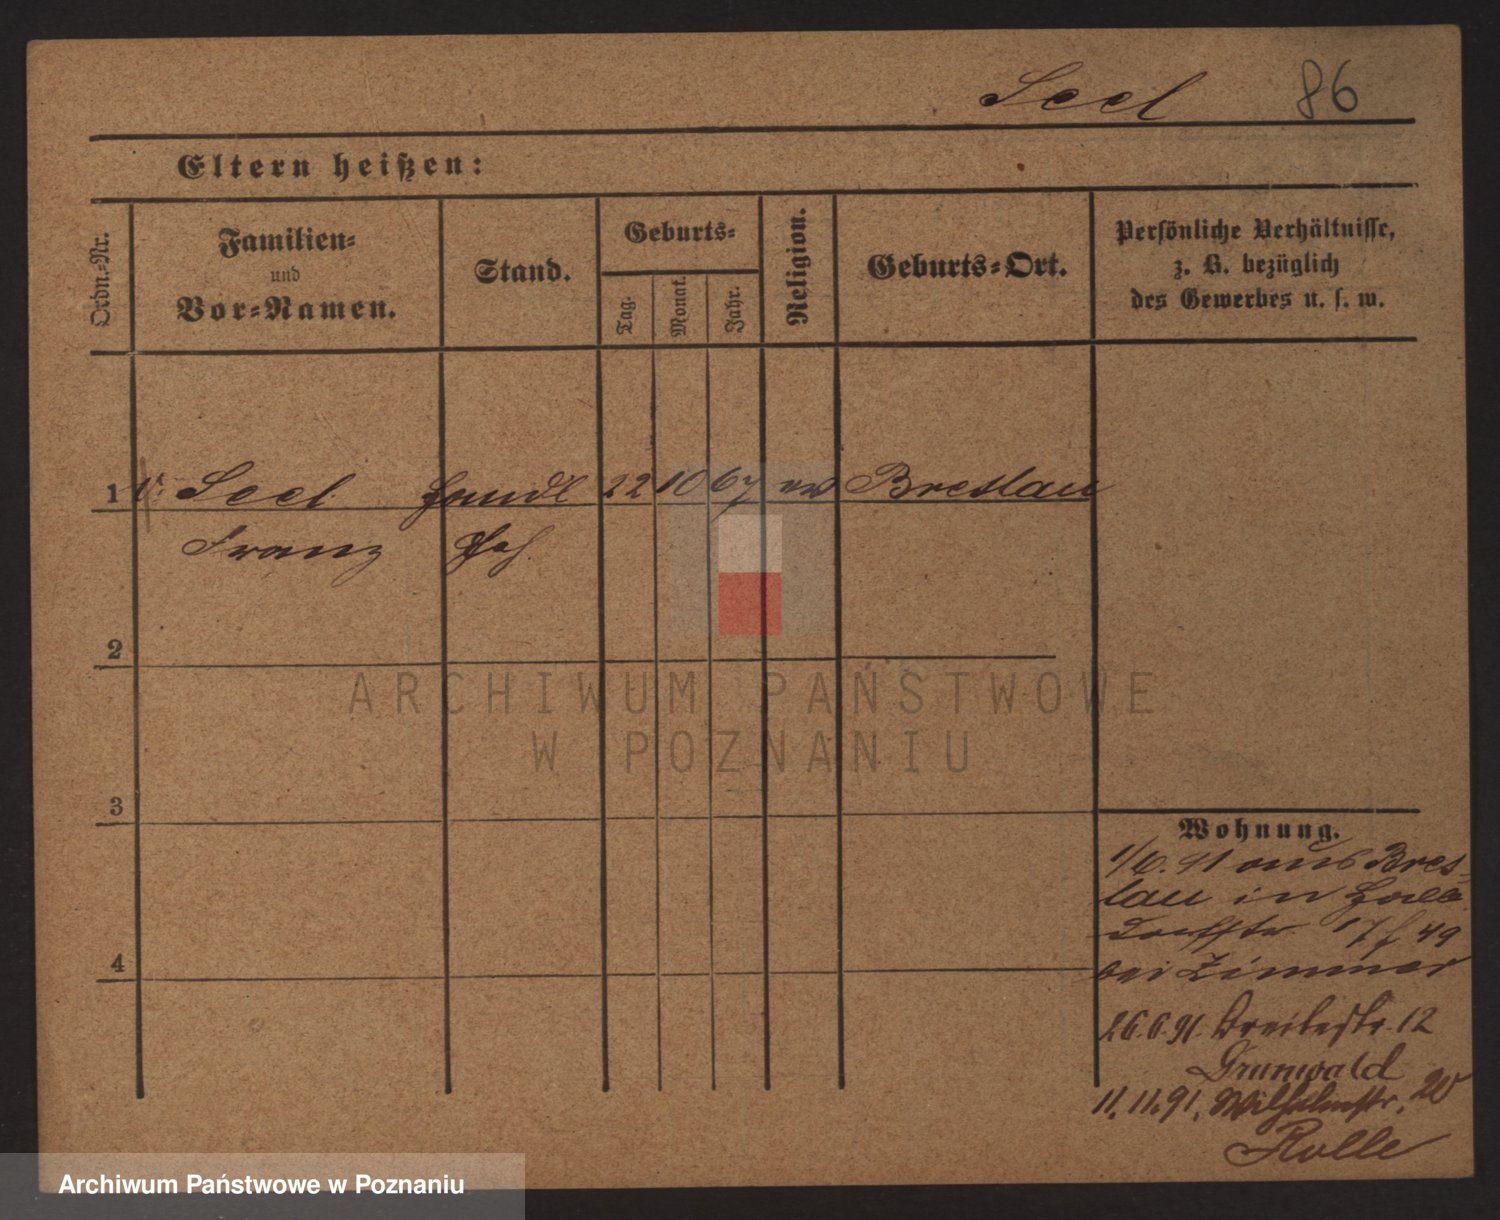 Seel 86
Eltern heißen:
Ordn.-Nr.
Familien-
und
Vor-Namen.
Stand.
Geburts-
Tag.
Monat.
Jahr.
Religion.
Geburts-Ort.
Persönliche Verhältnisse,
z. B. bezüglich
des Gewerbes u. s. w.
1 Seel Handl 22 10 67 ev Breslau
Franz Geh.
2
3
4
Wohnung.
1/6. 91 aus Bres-
lau in Halb
dorfstr 17 49
bei Zimmer
26.6.91. Breitestr. 12
Grunwald
11.11.91. Wilhelmstr. 20
Rolle
ARCHIWUM PAŃSTWOWE
W POZNANIU
Archiwum Państwowe w Poznaniu